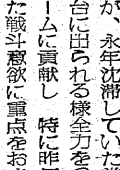 が、永年沈滞していた
台に出られる様全力を
ームに貢献し　特に昨
た戦斗意欲に重点をお